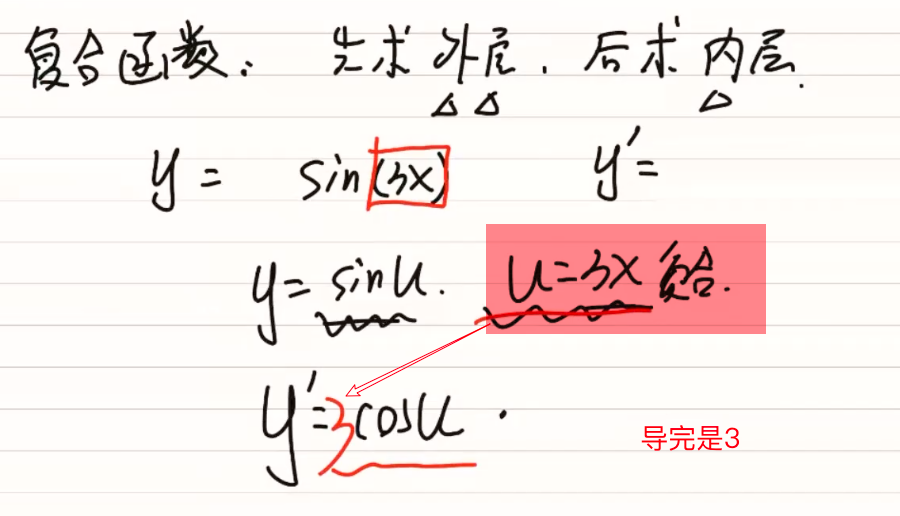 复合函数: 先求外层. 后求内层.
y = sin(3x) y' =
y = sinu. u=3x 复合.
y'=3cosu ·
导完是3